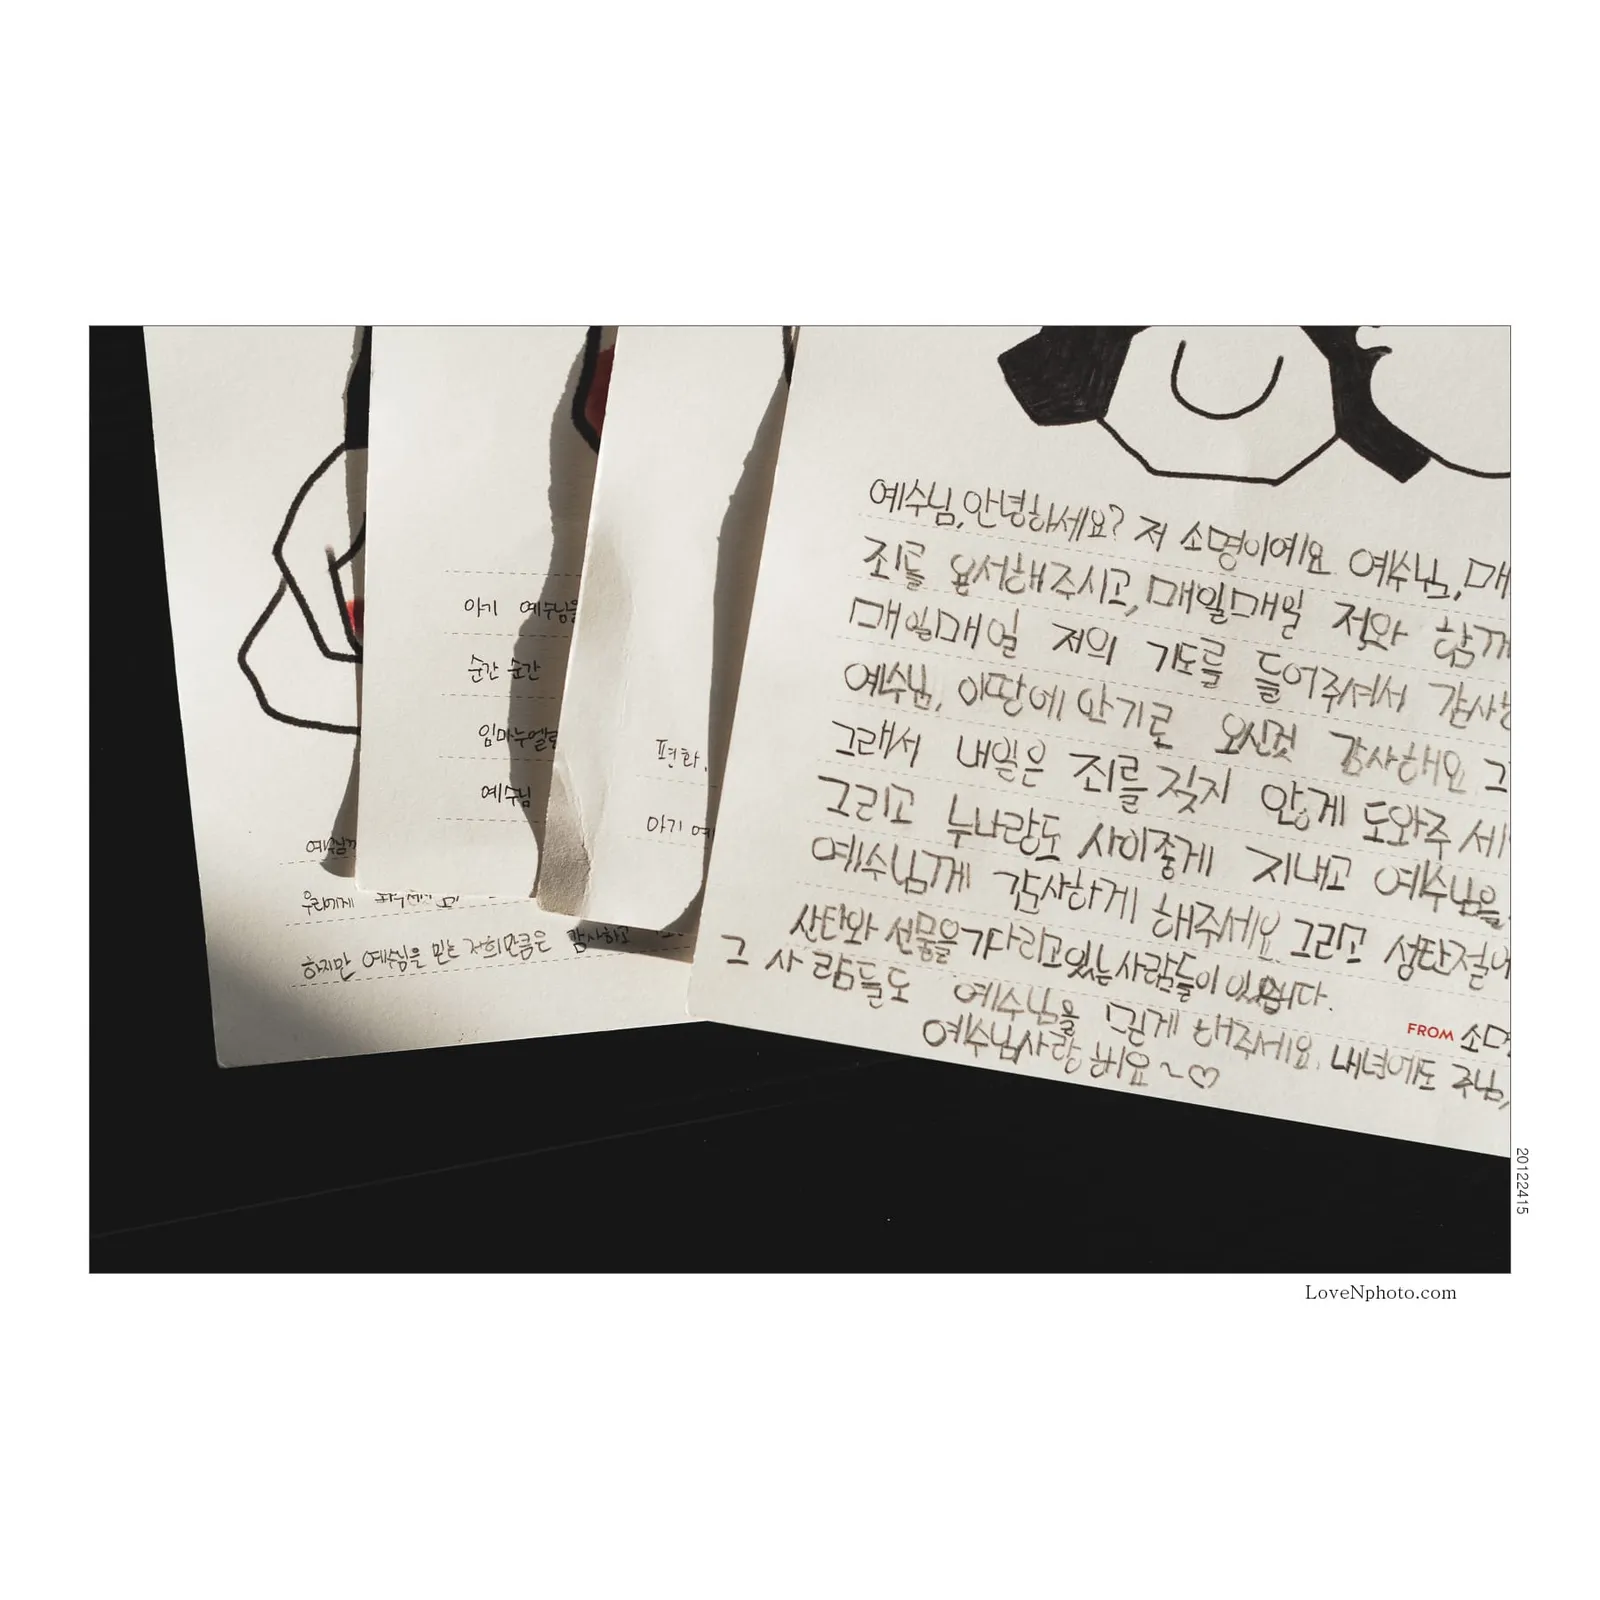 예수님께
우리에게
하지만 예수님을 믿는 저희만큼은 감사하고
아기 예수님을
순간 순간
임마누엘
예수님
평화,
아기 예
예수님, 안녕하세요? 저 소명이에요 예수님, 매
죄를 용서해주시고, 매일매일 저와 함께
매일매일 저의 기도를 들어주셔서 감사
예수님, 이땅에 아기로 오신것 감사해요 그
그래서 내일은 죄를 짖지 않게 도와주세
그리고 누나랑도 사이좋게 지내고 예수님을
예수님께 감사하게 해주세요. 그리고 성탄절에
산타와 선물을 기다리고있는 사람들이 있습니다.
그 사람들도 예수님을 믿게 해주세요. 내년에도 주님,
예수님사랑해요~♡
FROM 소명
20122415
LoveNphoto.com